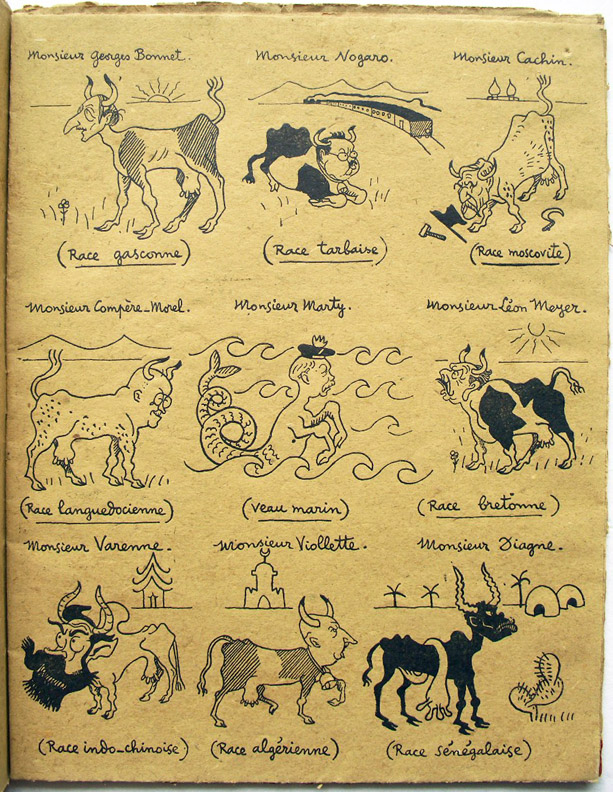 Monsieur Georges Bonnet.
Monsieur Nogaro.
Monsieur Cachin.
(Race gasconne)
(Race tarbaise)
(Race moscovite)
Monsieur Compère-Morel.
Monsieur Marty.
Monsieur Léon Meyer.
(Race languedocienne)
(Veau marin)
(Race bretonne)
Monsieur Varenne.
Monsieur Viollette.
Monsieur Diagne.
(Race indo-chinoise)
(Race algérienne)
(Race sénégalaise)